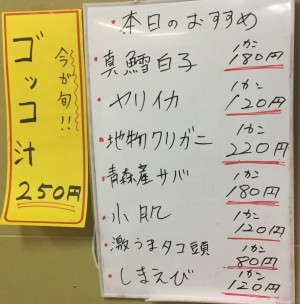 今が旬!!
ゴッコ汁
250円
・本日のおすすめ
・真鱈白子 1カン 180円
・ヤリイカ 1カン 120円
・地物クリガニ 1カン 220円
・青森産サバ 1カン 180円
・小肌 1カン 120円
・激うまタコ頭 1カン 80円
・しまえび 1カン 120円